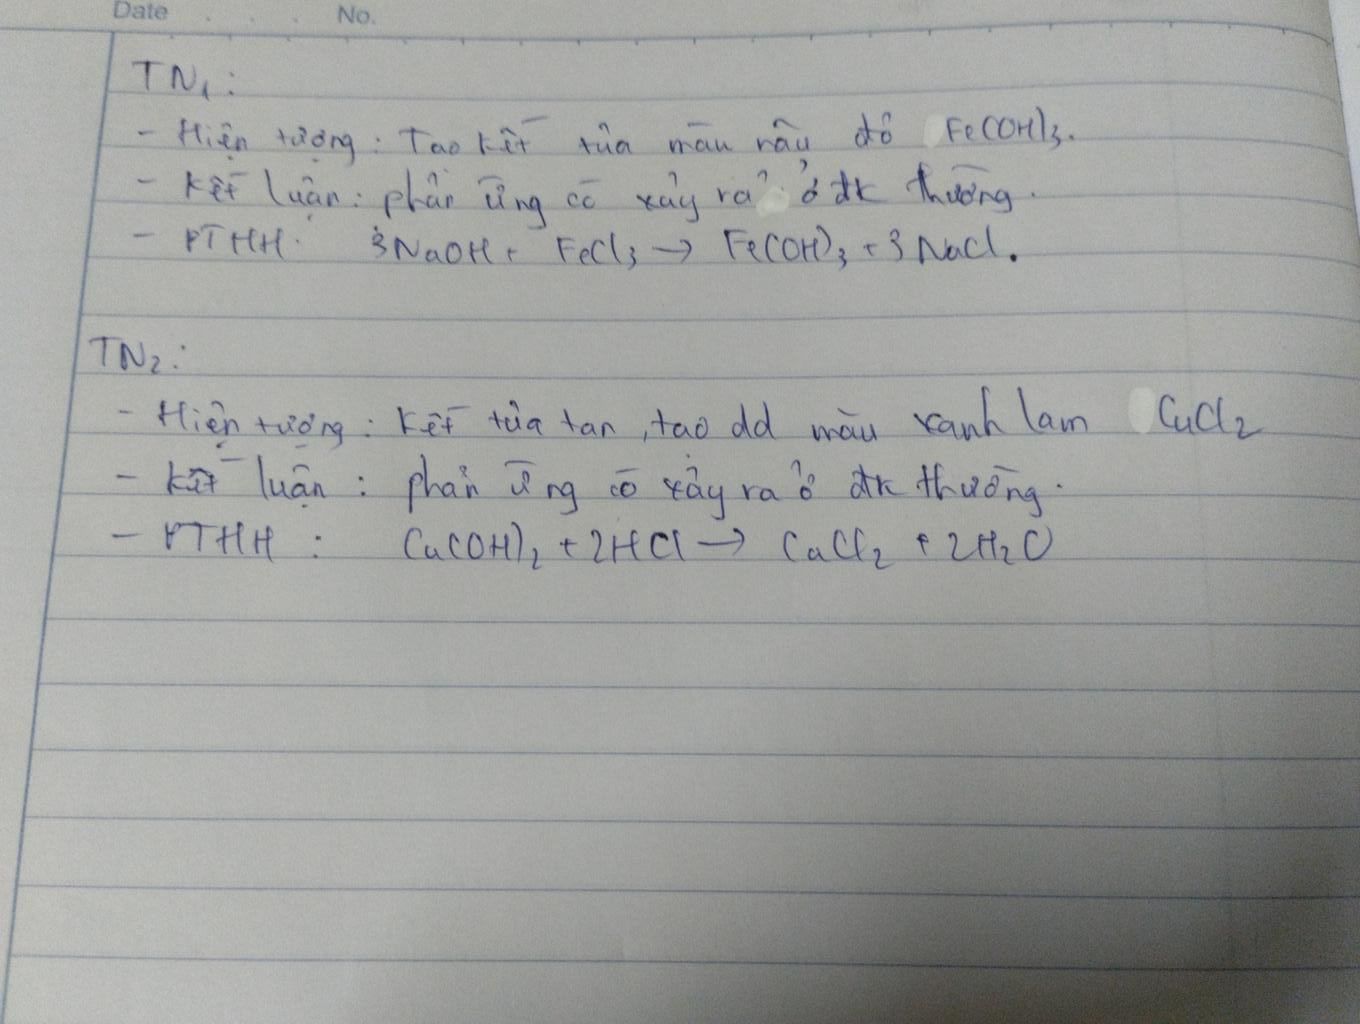 Date . . . No.
TN₁:
- Hiện tượng: Tạo kết tủa màu nâu đỏ Fe(OH)₃.
- Kết luận: phản ứng có xảy ra ở đk thường.
- PTHH: 3NaOH + FeCl₃ → Fe(OH)₃ + 3NaCl.
TN₂:
- Hiện tượng: Kết tủa tan, tạo dd màu xanh lam CuCl₂
- Kết luận: phản ứng có xảy ra ở đk thường.
- PTHH: Cu(OH)₂ + 2HCl → CuCl₂ + 2H₂O